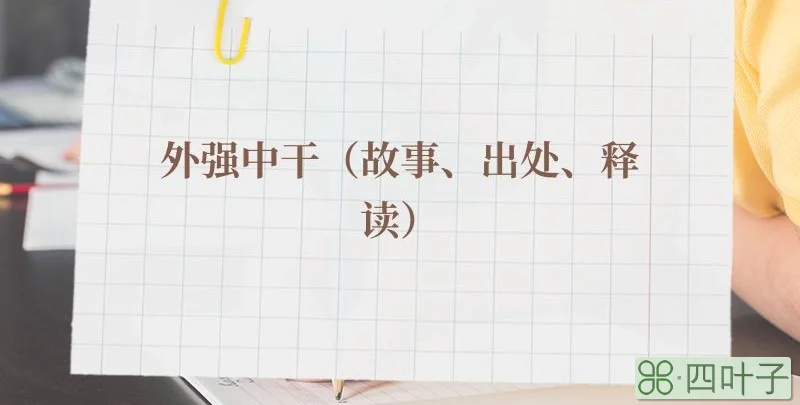 外强中干（故事、出处、释
读）
四叶子